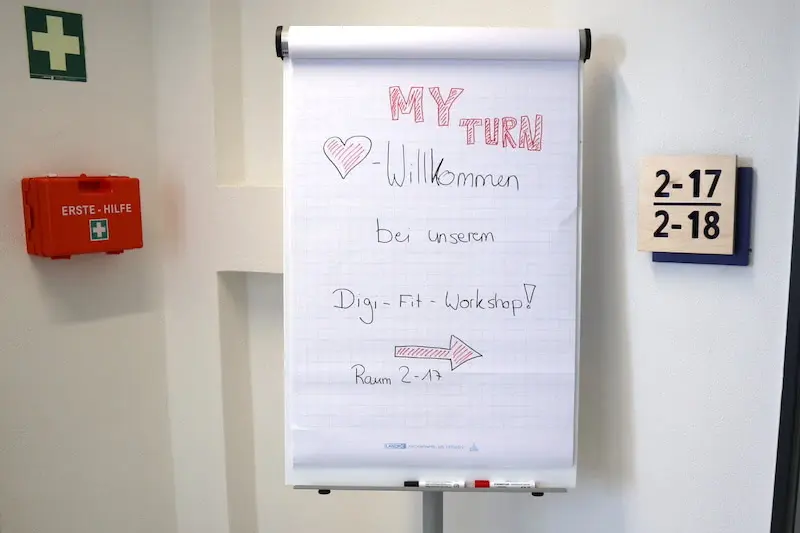 MY TURN
-Willkommen
bei unserem
Digi-Fit-Workshop!
Raum 2-17
ERSTE-HILFE
2-17
2-18